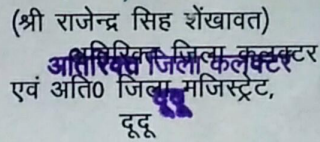 (श्री राजेन्द्र सिह शेंखावत)
अतिरिक्त जिला कलक्टर
अतिरिक्त जिला कलेक्टर
एवं अति0 जिला मजिस्ट्रेट,
दूदू
दूदू